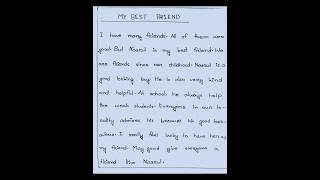 MY BEST FRIEND
I have many friends. All of them are
good. But Nazrul is my best friend. We
are friends since our childhood. Nazrul is a
good looking boy. He is also very kind
and helpful. At school he always help
the weak students. Everyone in our
locality admires his because his good beha-
viour. I really feel lucky to have him as
my friend. May good give everyone a
friend like Nazrul.